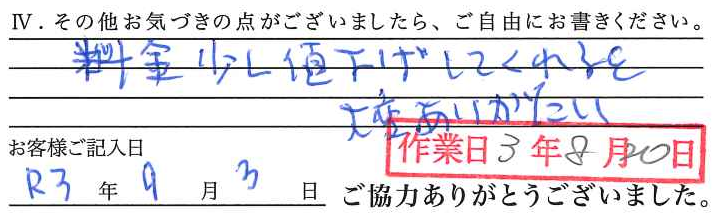 Ⅳ．その他お気づきの点がございましたら、ご自由にお書きください。
料金少し値下げしてくれると
大変ありがたい
お客様ご記入日
作業日3年8月20日
R3年9月3日
ご協力ありがとうございました。